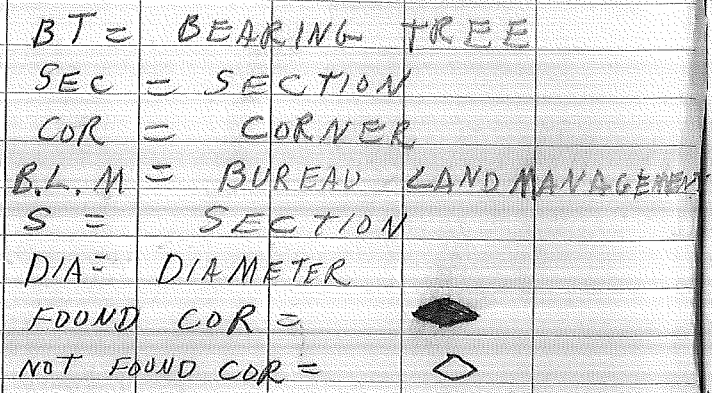 BT = BEARING TREE
SEC = SECTION
COR = CORNER
B.L.M = BUREAU LAND MANAGEMENT
S = SECTION
DIA = DIAMETER
FOUND COR =
NOT FOUND COR =